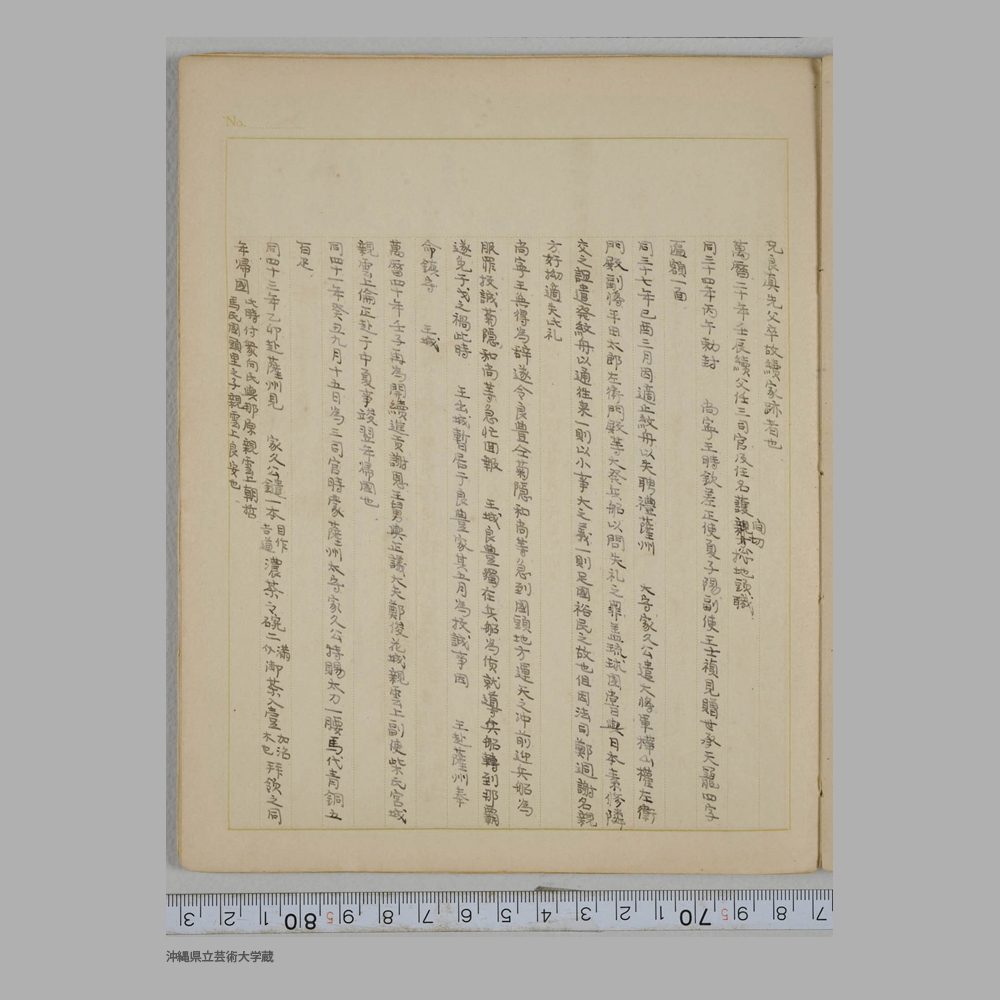 兄良真先父卒故續家跡者也
萬曆二十年壬辰續父任三司官後任名護間切親方総地頭職
同三十四年丙午勅封 尚寧王時欽差正使夏子陽副使王士禎見贈世承天寵四字
匾額一面
同三十七年己酉三月因適止紋舟以失聘禮薩州 大守家久公遣大將軍樺山權左衛
門殿副將平田太郎左衛門殿等大発兵船以問失礼之罪盖琉球國者自與日本素修隣
交之誼遣発紋舟以通往来一則以小事大之義一則足國裕民之故也但因法司鄭迵謝名親
方好拗適失此礼
尚寧王無得為辞遂令良豊全菊隠和尚等急到國頭地方運天之冲前迎兵船為
服罪投誠菊隠和尚等急忙回報 王城良豊獨在兵船為質就導兵船轉到那覇
遂免干戈之禍此時 王出城暫居于良豊家其五月為投誠事因 王赴薩州奉
命鎮守 王城
萬曆四十年壬子再為開續進貢謝恩王舅與正議大夫鄭俊花城親雲上副使柴氏宮城
親雲上倫正赴于中夏事竣翌年帰國也
同四十一年癸丑九月十五日為三司官時蒙薩州太守家久公特賜太刀一腰馬代青銅五
百疋
同四十三年乙卯赴薩州見 家久公鑓一本 目作吉道 濃茶之碗二 御茶入壹 加治木已 拜領之同
年帰國 此時付衆向氏與那原親雲上朝智
馬氏國頭里之子親雲上良安也
No.
3 2 1 80 9 5 8 7 6 5 4 3 2 1 70 5 9 8 7
沖縄県立芸術大学蔵